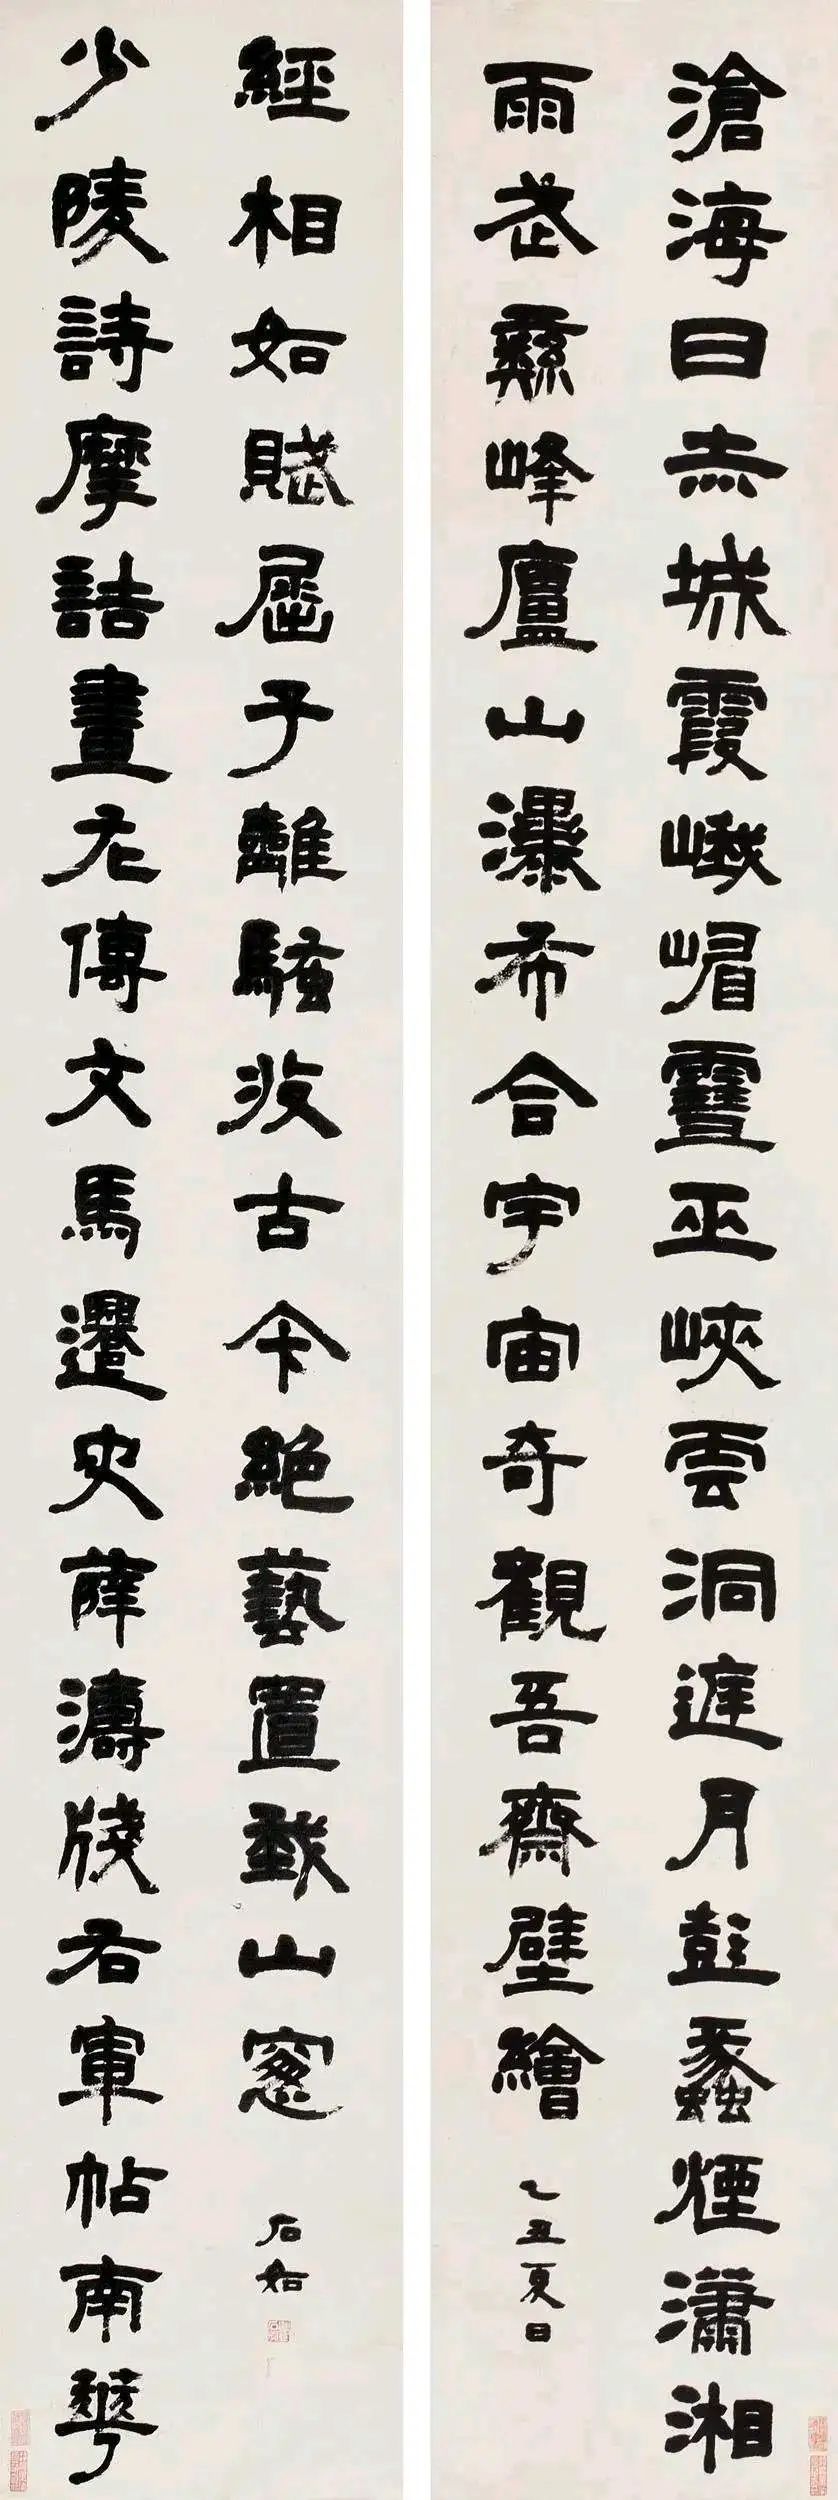 滄海日赤城霞峨嵋雪巫峽雲洞庭月彭蠡煙瀟湘
雨武彝峰廬山瀑布合宇宙奇觀吾齋壁繪
乙丑夏日
少陵詩摩詰畫左傳文馬遷史薛濤牋右軍帖南華
經相如賦屈子離騷收古今絕藝置我山窻
石如